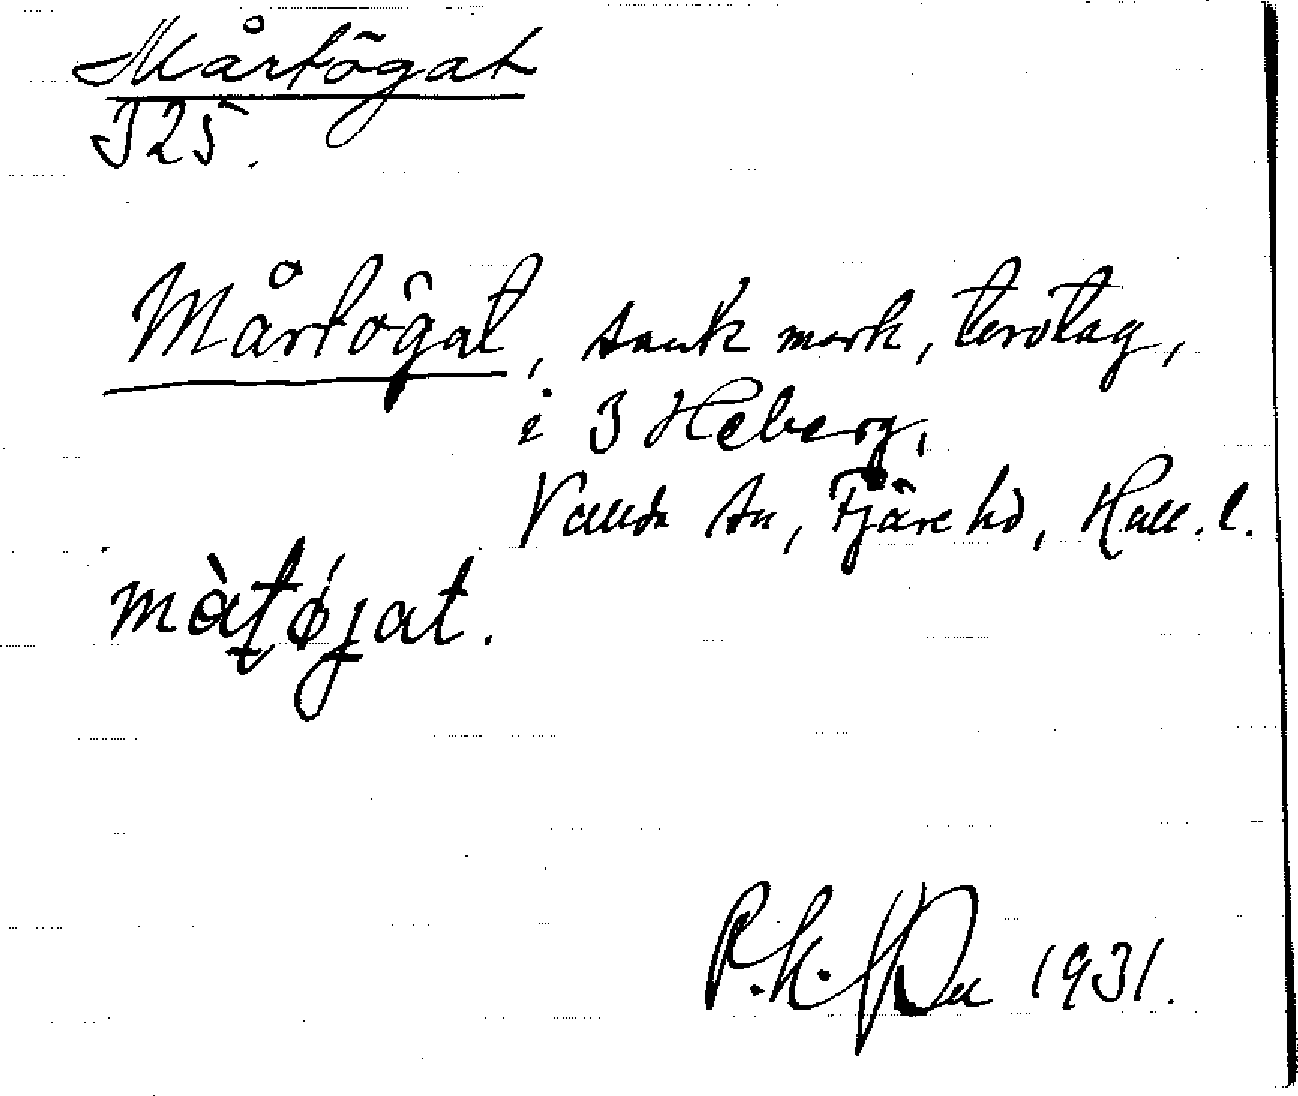 Mårtögat
J25.
Mårtögat, sank mark, torvtag,
i 3 Heberg,
Vallda sn, Fjäre hd, Hall. l.
måtøjat.
P. h. 1931.